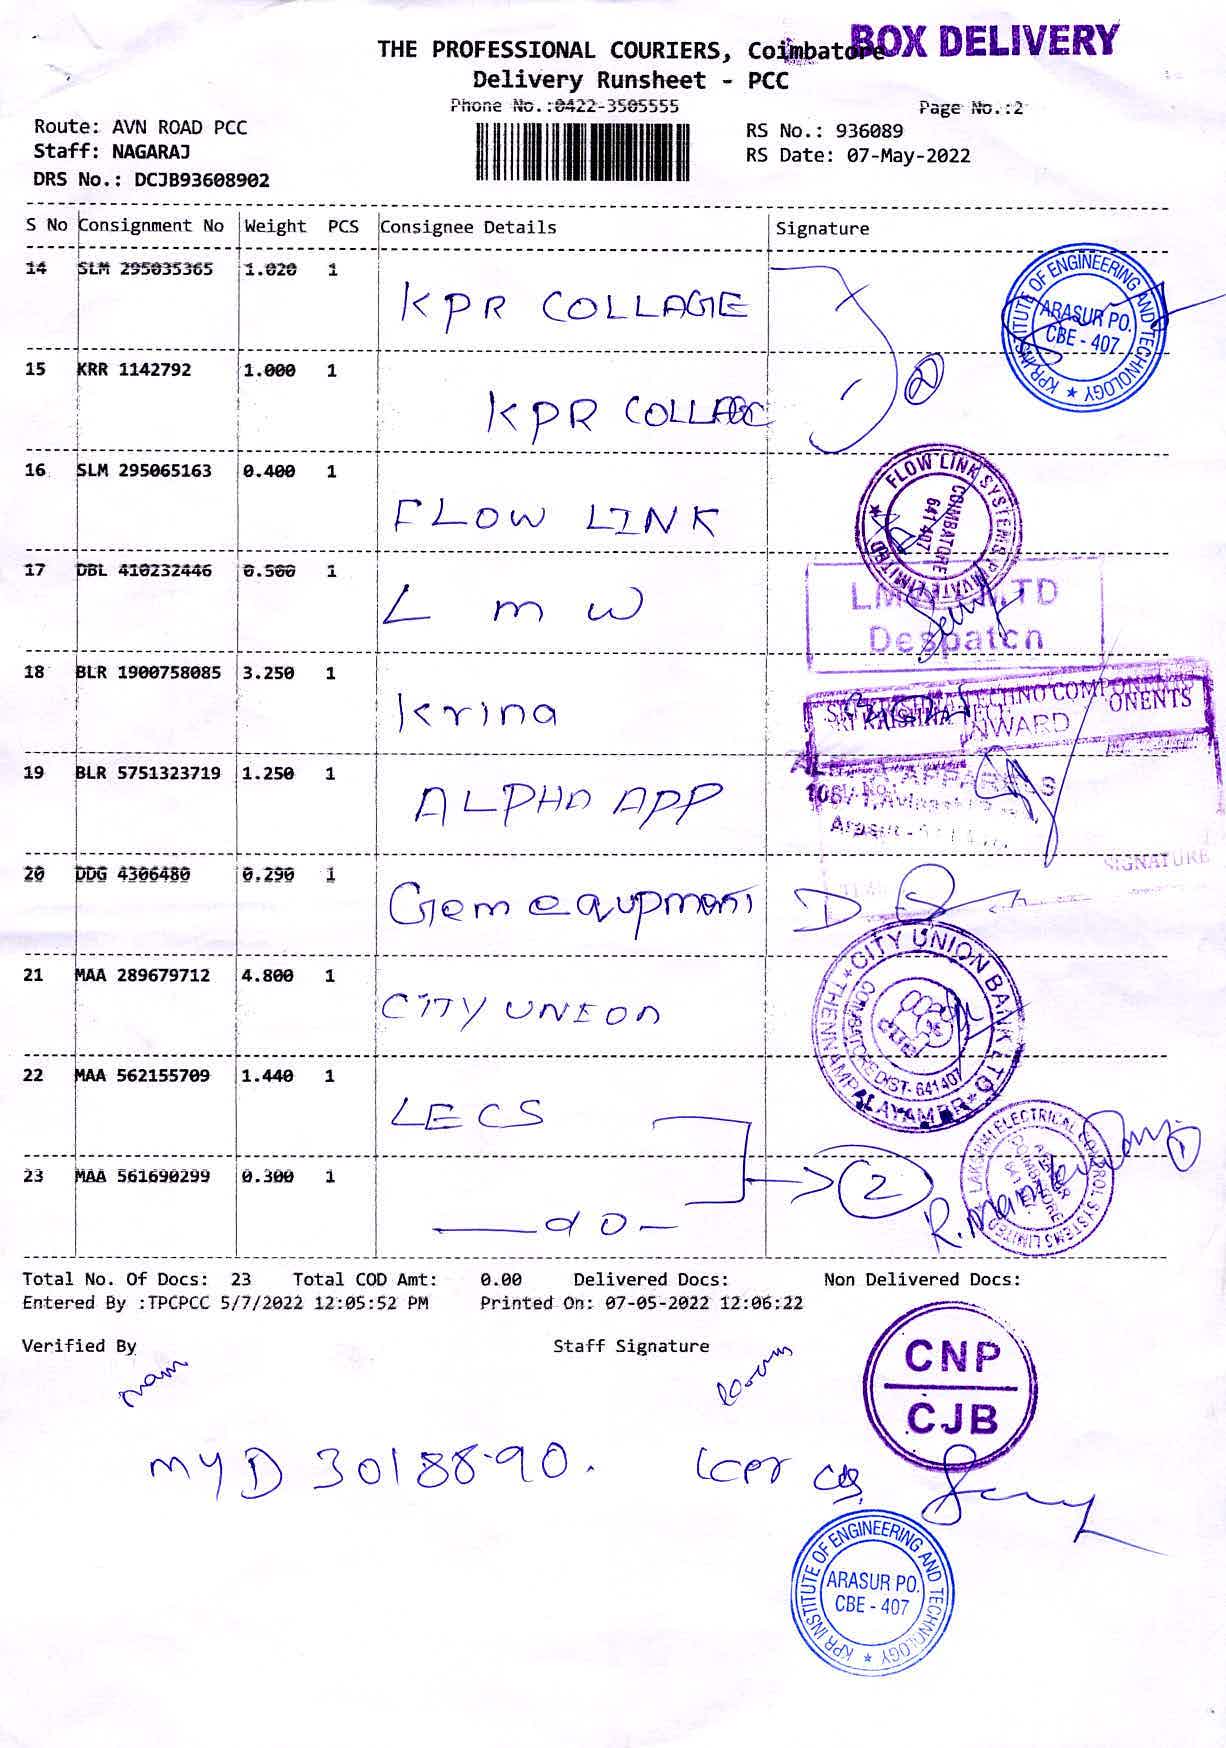 BOX DELIVERY
THE PROFESSIONAL COURIERS, Coimbatore
Delivery Runsheet - PCC
Phone No.:0422-3505555
Page No.:2
Route: AVN ROAD PCC
RS No.: 936089
Staff: NAGARAJ
RS Date: 07-May-2022
DRS No.: DCJB93608902
S No Consignment No Weight PCS Consignee Details Signature
14 SLM 295035365 1.020 1
KPR COLLAGE
KPR INSTITUTE OF ENGINEERING AND TECHNOLOGY
ARASUR PO.
CBE - 407
15 KRR 1142792 1.000 1
KPR COLLAGE
16 SLM 295065163 0.400 1
FLOW LINK
FLOW LINK SYSTEMS PRIVATE LIMITED
COIMBATORE
641 407
17 DBL 410232446 0.500 1
L m W
LTD
Despatch
18 BLR 1900758085 3.250 1
Krina
TECHNO COMPONENTS
INWARD
19 BLR 5751323719 1.250 1
ALPHA APP
SIGNATURE
20 DDG 4306480 0.290 1
Gem equpment
21 MAA 289679712 4.800 1
CITY UNION
CITY UNION BANK LTD
THENNAMPALAYAM BR
COIMBATORE DIST- 641407
22 MAA 562155709 1.440 1
LECS
LAKSHMI ELECTRICAL CONTROL SYSTEMS LIMITED
23 MAA 561690299 0.300 1
— do —
2
Total No. Of Docs: 23 Total COD Amt: 0.00 Delivered Docs: Non Delivered Docs:
Entered By :TPCPCC 5/7/2022 12:05:52 PM Printed On: 07-05-2022 12:06:22
Verified By Staff Signature
CNP
CJB
MYD 3018890. kpr clg
KPR INSTITUTE OF ENGINEERING AND TECHNOLOGY
ARASUR PO.
CBE - 407